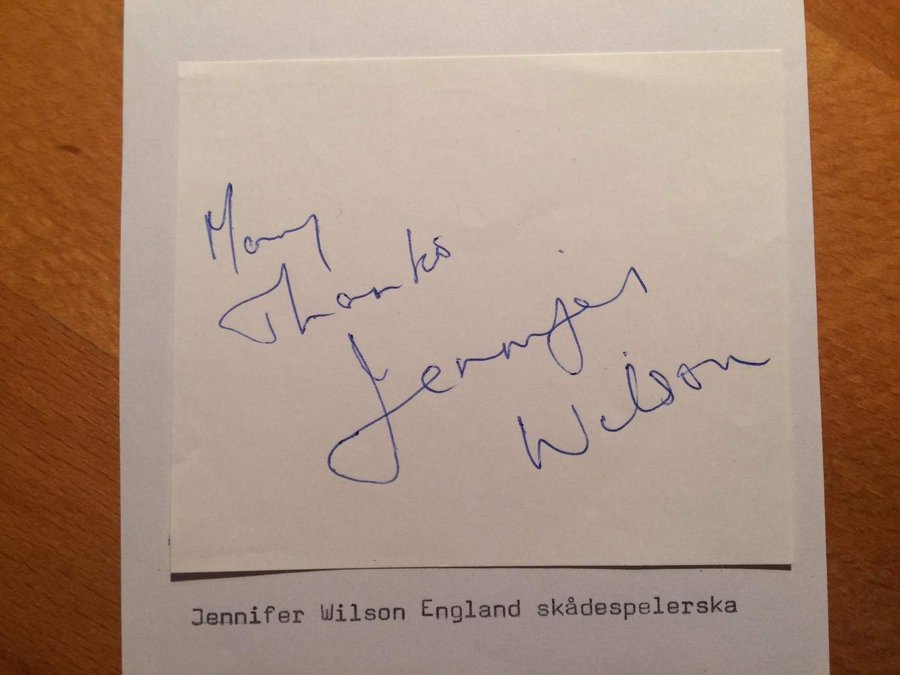 Many
Thanks
Jennifer
Wilson
Jennifer Wilson England skådespelerska